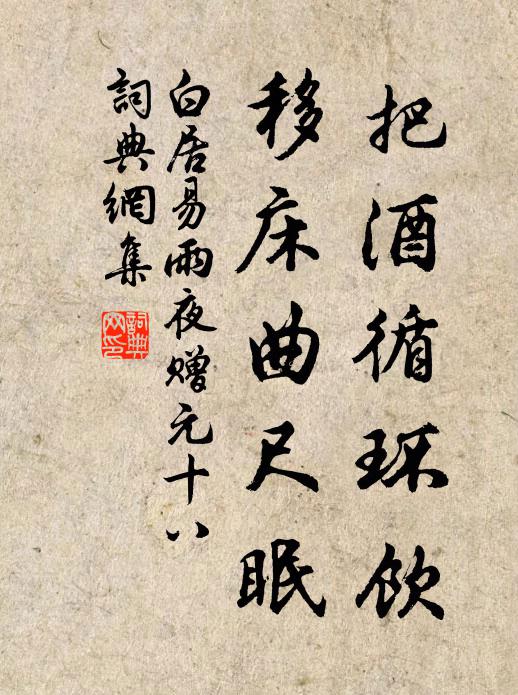 把酒循环饮
移床曲尺眠
白居易雨夜赠元十八
詞典網集
詞典網印